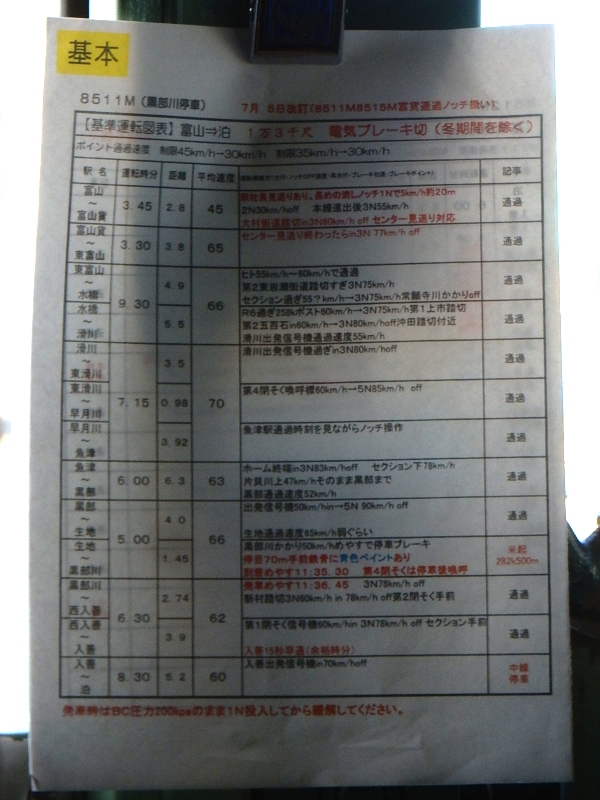 基本
8511M(黒部川停車) 7月 5日改訂(8511M8515M富貨通過ノッチ扱い)
【基準運転図表】富山⇒泊 1万3千尺 電気ブレーキ切(冬期間を除く)
ポイント通過速度 制限45km/h→30km/h 制限35km/h→30km/h
駅名 運転時分 距離 平均速度 記事
富山
〜
富山貨
3.45 2.8 45
2N30km/hoff 本線進出後3N55km/h
大村街道踏切in3N60km/h off センター見送り対応
通過
富山貨
〜
東富山
3.30 3.8 65
センター見送り終わったらin3N 77km/h off
通過
東富山
〜
水橋
9.30 4.9 66
ヒト55km/h〜60km/hで通過
第2東岩瀬街道踏切すぎ3N75km/h
セクション過ぎ55?km/h→3N75km/h常願寺川かかりoff
通過
水橋
〜
滑川
5.5
R6過ぎ258kポスト60km/h→3N75km/h第1上市踏切
第2五百石in60km/h→3N80km/hoff沖田踏切付近
滑川出発信号機通過速度55km/h
通過
滑川
〜
東滑川
7.15 3.5 70
滑川出発信号機過ぎin3N80km/hoff
通過
東滑川
〜
早月川
0.98
第4閉そく喚呼標60km/h→5N85km/h off
通過
早月川
〜
魚津
3.92
魚津駅通過時刻を見ながらノッチ操作
通過
魚津
〜
黒部
6.00 6.3 63
ホーム終端in3N83km/hoff セクション下78km/h
片貝川上47km/hそのまま黒部まで
黒部通過速度52km/h
通過
黒部
〜
生地
5.00 4.0 66
出発信号機50km/hin→5N 90km/h off
生地通過速度65km/h弱ぐらい
通過
生地
〜
黒部川
1.45
黒部川かかり50km/hめやすで停車ブレーキ
停目70m手前鉄骨に黄色ペイントあり
到着めやす11:35.30 第4閉そくは停車後喚呼
米起
282k500m
黒部川
〜
西入善
6.30 2.74 62
発車めやす11:36.45 3N78km/h off
新村踏切3N60km/h in 78km/h off第2閉そく手前
通過
西入善
〜
入善
3.9
第1閉そく信号機60km/hin 3N78km/h off セクション手前
入善15秒早通(余裕時分)
通過
入善
〜
泊
8.30 5.2 60
入善出発信号機in70km/hoff
中線
停車
発車時はBC圧力200kpaのまま1N投入してから緩解してください。